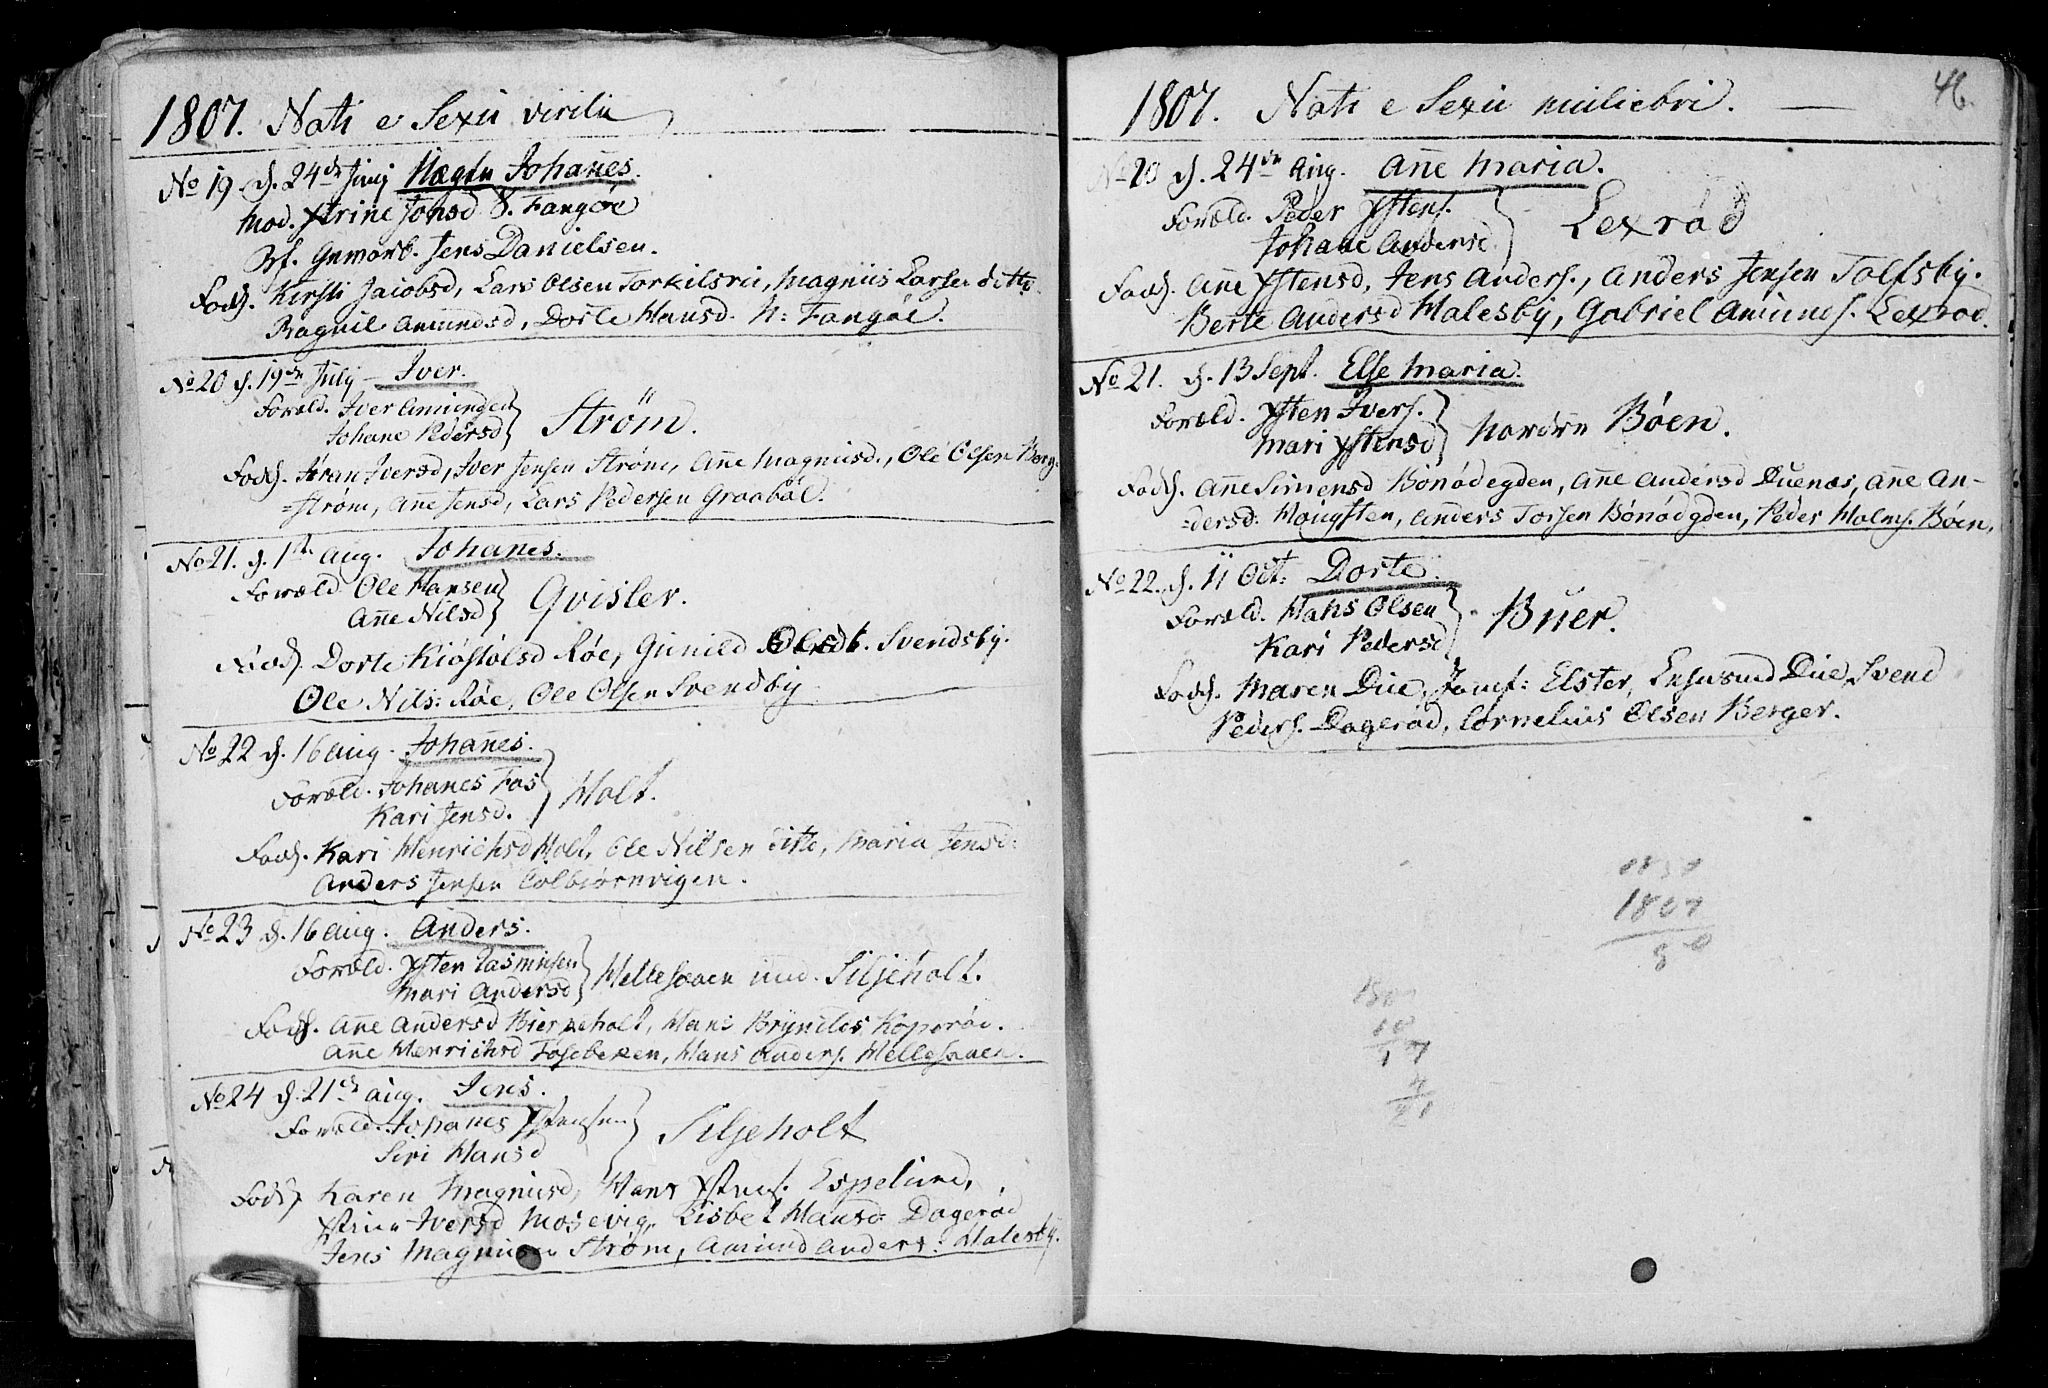 1807. Nati e Sexu virili
No 19 d. 24de Junj Uægte Johañes.
Mod. Xstrine Jonsd S. Fangöe
Bf. Gnmarb. Jens Danielsen.
Fadd. Kirsti Jacobsd, Lars Olsen Torkilsrü, Magnus Larsen ditto
Ragnil Amundsd, Dorte Hansd. N: Fangöe.
No 20 d. 19de July – Iver.
Foræld. Iver Amundsen
Johane Pedersd } Ström.
Fadd. Jöran Iversd, Iver Jensen Ström, Añe Magnusd., Ole Olsen Berg-
=ström, Añe Jensd, Lars Pedersen Graaböl.
No 21. d. 1ste Aug. Johanes.
Foræld Ole Hansen
Añe Nilsd } Qvisler.
Fadd. Dorte Kiöstolsd Röe, Gunild Olsdt. Svendsby.
Ole Nils: Röe, Ole Olsen Svendby
No 22 d. 16 Aug. Johañes.
Foræld. Johanes Fas
Kari Jensd. } Holt.
Fadd. Kari Henrichsd Holt, Ole Nilsen ditto, Maria Jensd:
Anders Jensen Colbiörnvigen.
No 23 d. 16 Aug. Anders.
Foræld. Ysten Rasmusen
Mari Andersd } Hellesaaen und. Siljeholt.
Fadd. Añe Andersd Bierkeholt, Hans Bryniels. Koperöe.
Añe Henrichsd Foseboken, Hans Anders. Hellesaaen.
No 24 d. 21de Aug. Jens.
Foræld. Johanes Ystensen
Siri Hansd } Siljeholt
Fadd. Karen Magnusd, Hans Ystens. Espelund,
Xstine Iversd Mosevig, Lisbet Hansd: Dageröd
Jens Magnusen Ström, Amund Anders: Halesby.
1807. Nati e Sexu muliebri. — 46.
No 20 d. 24de Aug. Añe Maria.
Foræld. Peder Ystens.
Johane Andersd } Lexröd
Fadd. Añe Ystensd, Jens Anders., Anders Jensen Tolfsby.
Berte Andersd Halesby, Gabriel Amunds. Lexröd.
No 21. d. 13 Sept. Else Maria.
Foræld. Ysten Ivers.
Mari Ystensd } Nordre Böen.
Fadd. Añe Simensd Bönödegden, Añe Andersd Duenæs, Añe An-
=dersd: Hougsten, Anders Torsen Bönödgden, Peder Holms. Böen,
No 22. d. 11 Oct: Dorte.
Foræld. Hans Olsen
Kari Pedersd } Buer.
Fadd. Maren Due, Jomf: Elster, Due, Svend
Peders. Dageröd, Cornelius Olsen Berger.
1857
1807
50
180
10
17
4
21